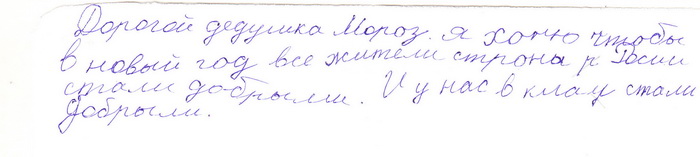 Дорогой дедушка Мороз. я хочю чтобы
в новый год все жители строны р. Росии
стали добрыми. И у нас в класу стали
добрыми.